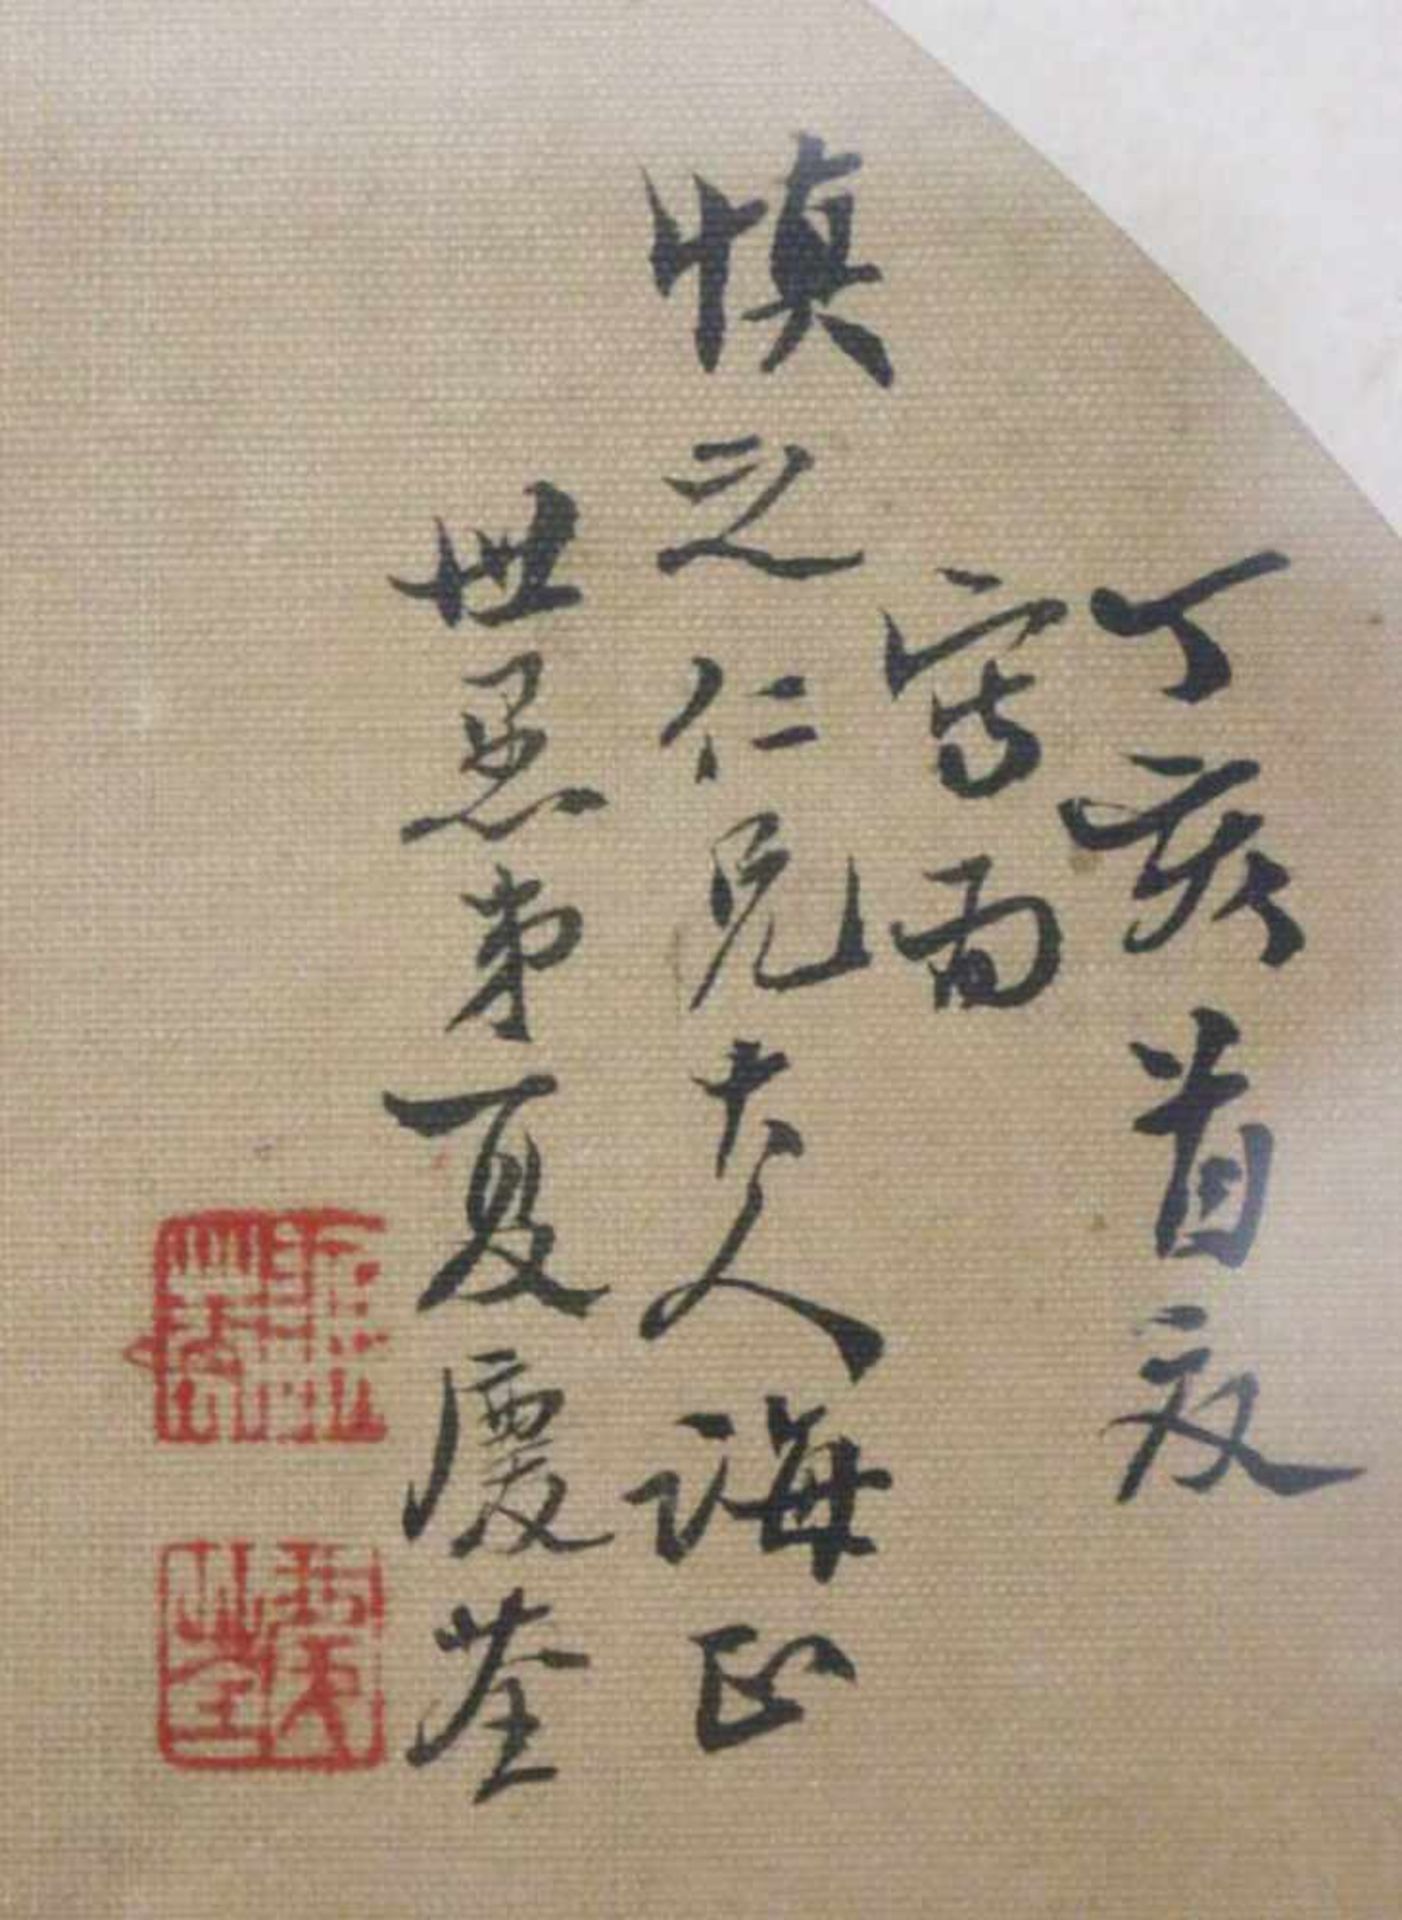 丁亥首夏
寫留
慎之仁兄大人誨正
世愚弟夏慶荃